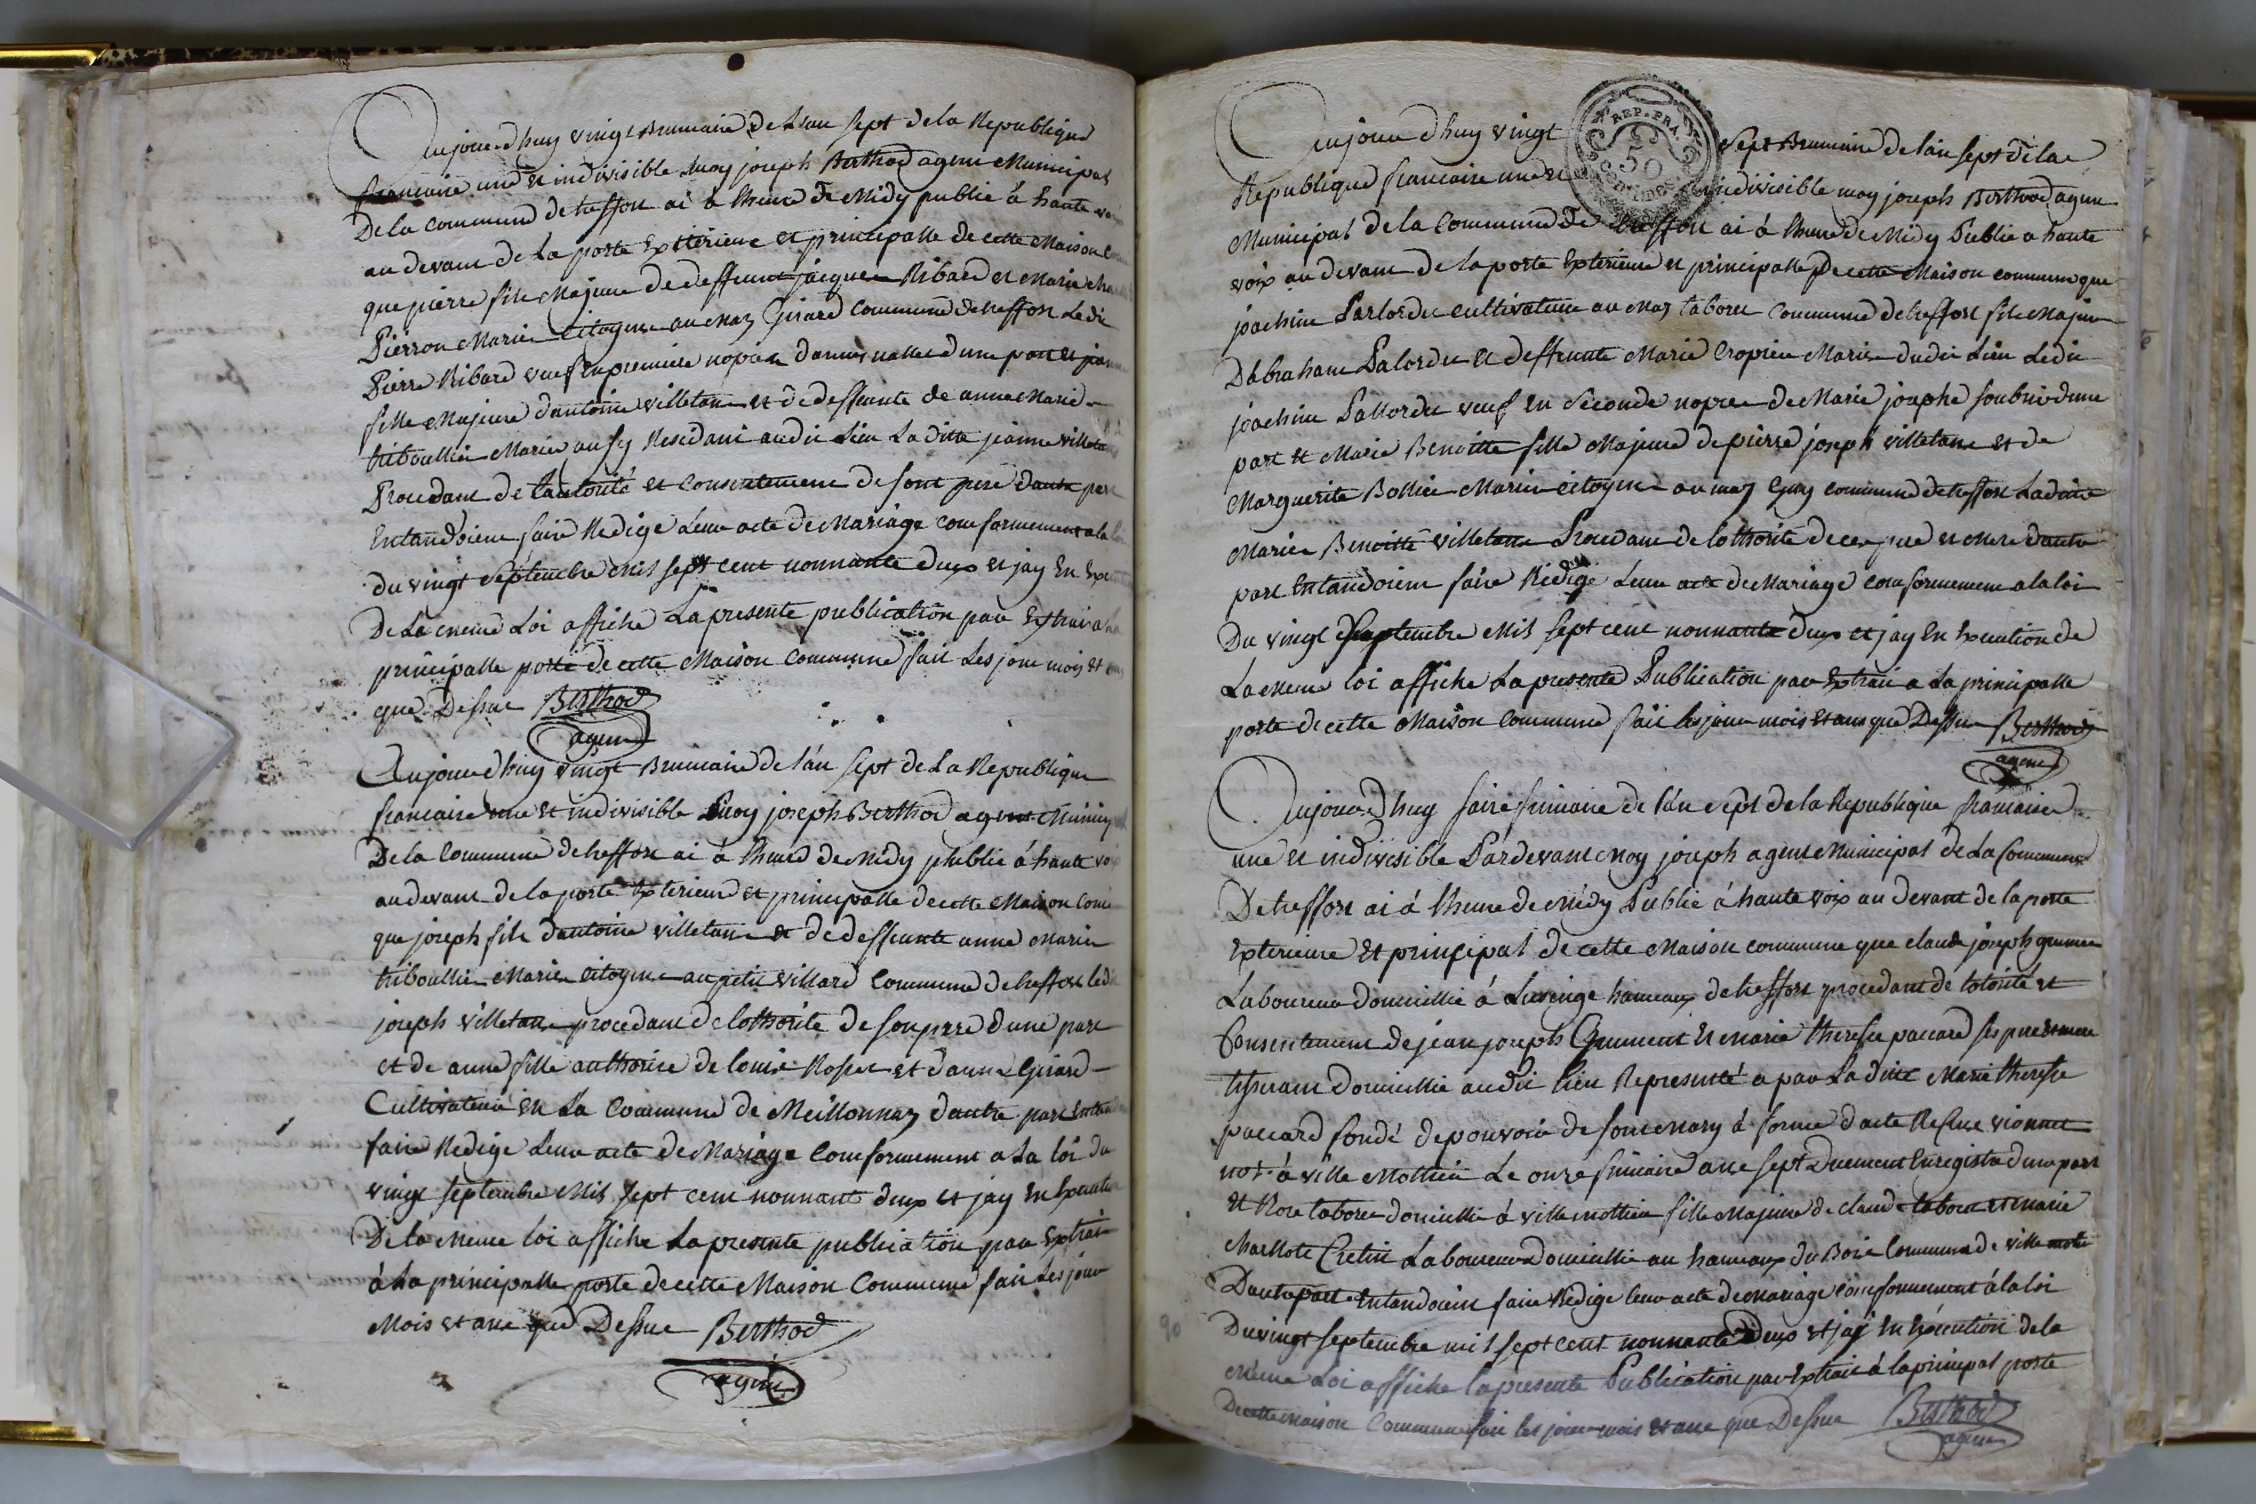 Aujourdhuy vingt Brumaire de Lan sept de la Republique
francaise une et indivisible moy joseph Berthod agent Municipal
De la commune de treffort ai à lheure de Midy publié à haute voix
au devant de La porte Exterieure et principalle de cette Maison
que pierre fils Majeure de deffunt jacque Ribard et Marie
Pierron Marier citoyens au Maz Girard commune de treffort Le dit
Pierre Ribard veuf En premiere nopces dune part et jeanne
fille Majeure dantoine villetant et de deffunte de anne Marie
triboullier Marier ausy Residant audit Lieu La ditte jeanne villetant
Procedant de Lautorité et Consentement de sont pere dautre part
Entandoient faire Redige Leur acte de Mariage conformement a la loi
du vingt Séptembre Mil sept cent nonnante deux et jay En
De La meme Loi affiché La presente publication par Extrait a la
principalle porte de cette Maison Commune fait Les jour mois et
que Dessus Berthod
agent
Aujourdhuy vingt Brumaire de lán sept de La Republique
francaise une et indivisible Moy joseph Berthod agent
De la Commune de treffort ai à lheure de Midy publié à haute voix
au devant de la porte Exterieure et principalle de cette Maison
que joseph fils dantoine villetant et de deffunte anne Marie
triboullier Marier citoyens au petit villard Commune de treffort ledit
joseph villetant procedant de lothorité de son pere dune part
et de anne fille authorisé de louis Rosset et danne Girard
Cultivateur en La Commune de Meillonnaz dautre part
faire Redige Leur acte de Mariage Conformement a La loi du
vingt septembre Mil sept cent nonnante deux et jay en
De la Meme loi affiche La presente publication par Extrait
à La principalle porte de cette Maison Commune fait Les jour
Mois et ant que Dessus Berthod
agent
Aujourdhuy vingt Sept Brumaire de lán sept de la
Republique francaise une et indivisible moy joseph Berthod agent
REP. FRA.
50
centimes
Municipal de la Commune de treffort ai à lheure de Midy Publié a haute
voix au devant de la porte Exterieure et principalle de cette Maison commune que
joachim Parlordet cultivateur au Maz taboret Commune de treffort fils Majeur
Dabraham Palordet et deffunte Marie Marier dudit Lieu Ledit
joachim Pallordet veuf En Seconde nopces de Marie josephe dune
part et Marie Benoitte fille Majeure de pierre joseph villetant et de
Marguerite Bollier Marier citoyens au maz commune de treffort Laditte
Marie Benoitte villetant Procedant de lothorité de ces pere et Mere dautre
part Entandoient faire Rédigé Leur acte de Mariage conformement a la loi
Du vingt Septembre Mil sept cent nonnante deux et jay En Execution de
La Meme loi affiche La presente Publication par Extrait a La principalle
porte de cette Maison Commune fait les jour mois et ans que Dessus Berthod
agent
Aujourdhuy frimaire de lán sept de la Republique francaise
une et indivisible Pardevant Moy joseph agent Municipal de La Commune
De treffort ai à lheure de Midy Publié à haute voix au devant de la porte
Exterieure et principal de cette Maison commune que claude joseph
Laboureur domicillié à Lucinge hameaux de treffort procedant de lotorité et
Consentement de jean joseph Grument et Marie therese paccard ses pere et mere
tisserant domicillié audit lieu Representé a par La dite Marie therese
paccard fondé de pouvoir de sont Mary à forme dacte Reçue vionnet
not. à ville Mottier Le onze frimaire ane sept Duement Enregistré dune part
et Rose taboret domicillié à villemottier fille Majeure de claude taboret et marie
charllote Cretin Laboureur Domicillié au hameaux du Bois Commune de ville motier
Dautre part Entandoient faire Redige leur acte de Mariage Conformement à la loi
Du vingt septembre mil sept cent nonnante Deux et jay En Execution de la
même Loi affiche la presente Publication par Extrait à la principal porte
De cette Maison Commune fait les jour mois et ane que Dessus Berthod
agent
90